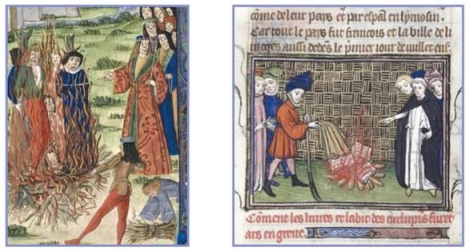 cōme de leur pays et par espāl en lymosin
Car tout le pays fut francois et la ville de li
moges aussi dedēs le pmier iour de iuillet ens.
Cōment les liures et labit des furēt
ars en greue.